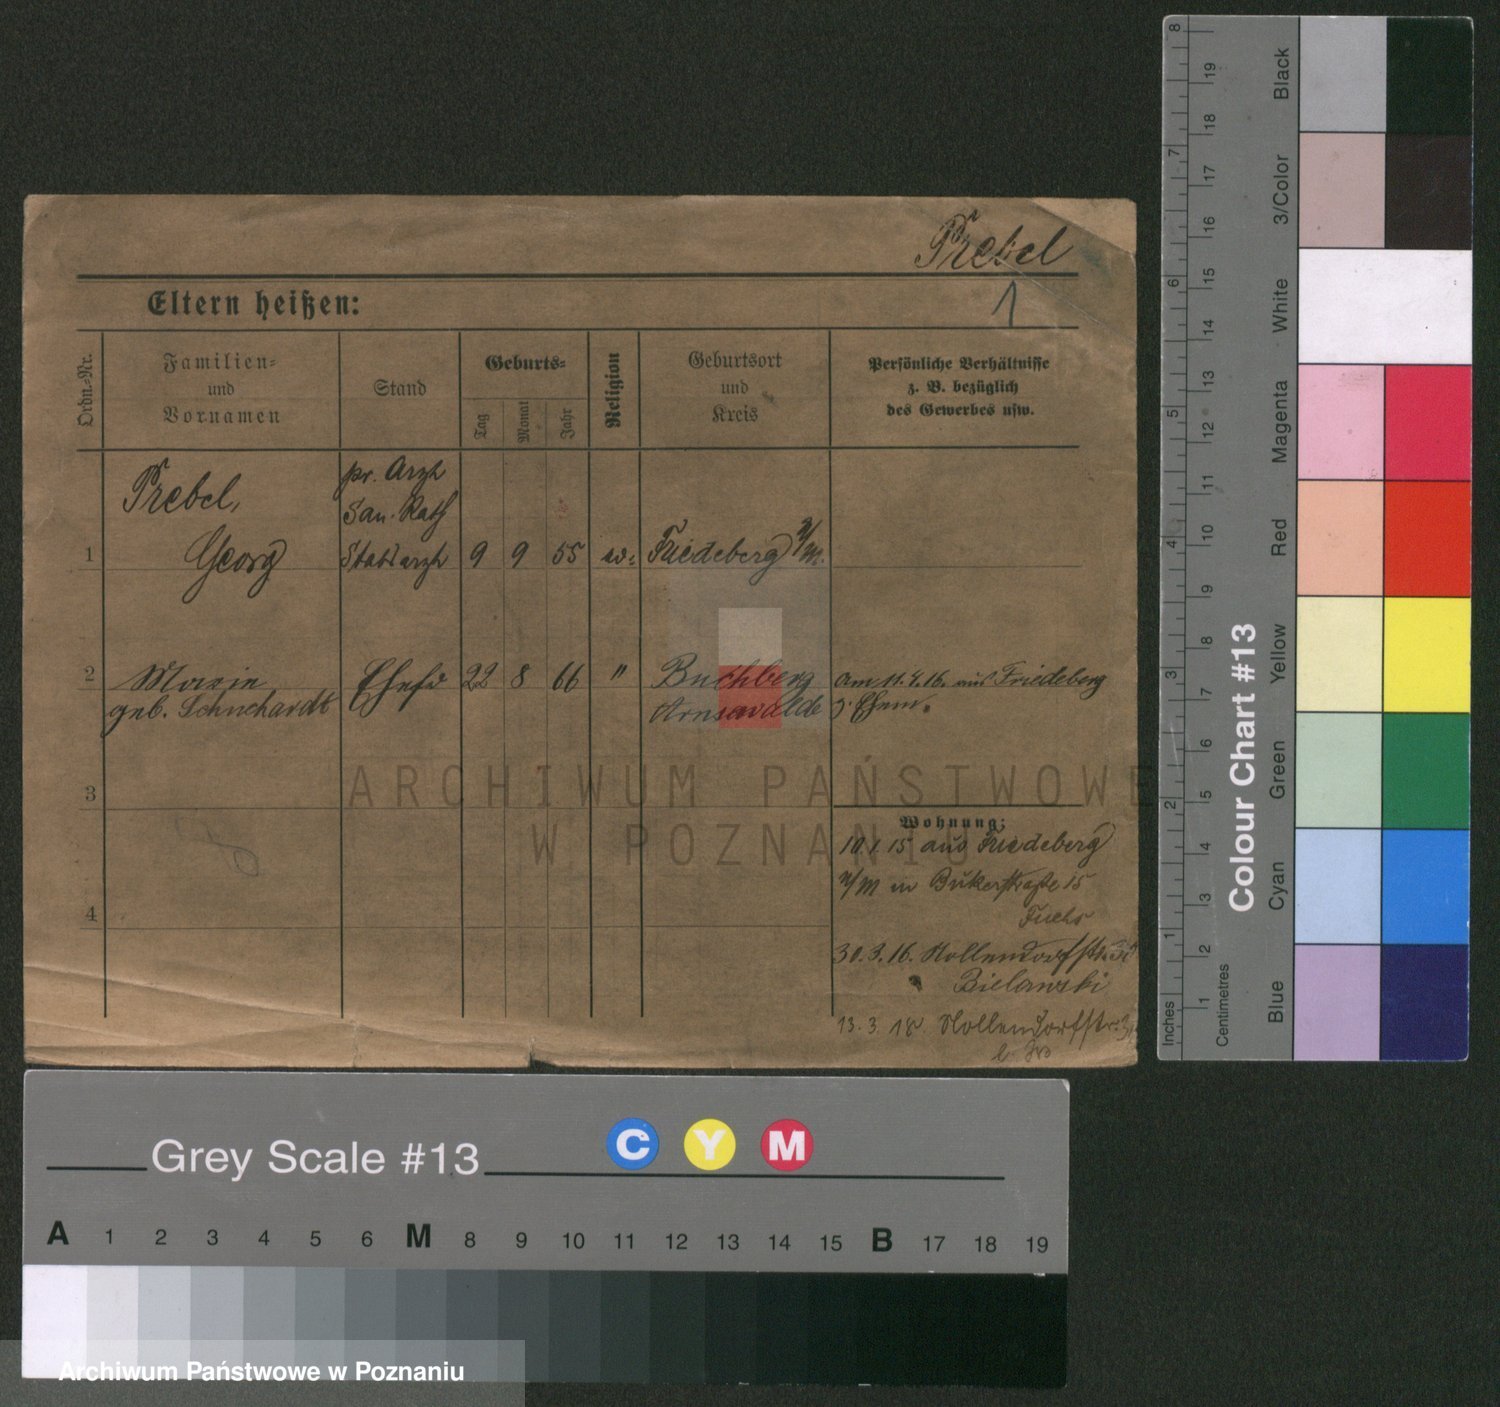 Prebel
Eltern heißen:
1
Ordn.-Nr.
Familien- und Vornamen
Stand
Geburts-
Tag
Monat
Jahr
Religion
Geburtsort und Kreis
Persönliche Verhältnisse
z. B. bezüglich
des Gewerbes usw.
1
Prebel,
Georg
pr. Arzt
San. Rath
Stabsarzt
9 9 55
Friedeberg N/M.
2
Marie
geb. Schuchardt
Ehefr
22 8 66 "
Buchberg
Arnswalde
am 11.4.16. aus Friedeberg
z. Ehem.
3
4
Wohnung:
10.1.15 aus Friedeberg
N/M in Bukerstraße 15
Fuchs
30.3.16. Hollendorfstr.
Bielawski
13.3.18. Hollendorfstr.
ARCHIWUM PAŃSTWOWE
W POZNANIU
Grey Scale #13
C Y M
A 1 2 3 4 5 6 M 8 9 10 11 12 13 14 15 B 17 18 19
Archiwum Państwowe w Poznaniu
Colour Chart #13
Blue
Cyan
Green
Yellow
Red
Magenta
White
3/Color
Black
Inches
1 2 3 4 5 6 7 8
Centimetres
1 2 3 4 5 6 7 8 9 10 11 12 13 14 15 16 17 18 19